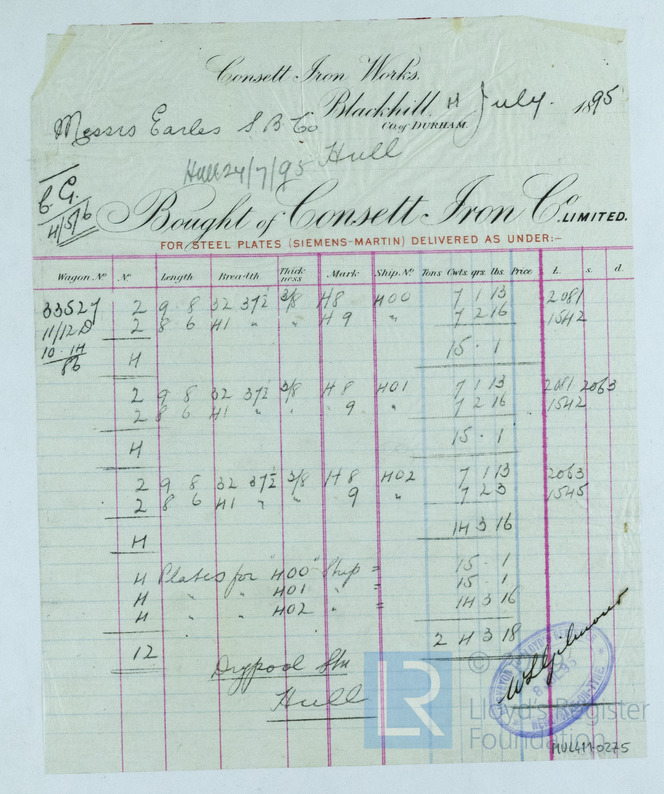 Consett Iron Works.
Blackhill, 4 July. 1895
CO. of DURHAM.
Messrs Earles S. B. Co
Hull
Hull 24/7/95
4/5/6
Bought of Consett Iron Co. LIMITED.
FOR STEEL PLATES (SIEMENS-MARTIN) DELIVERED AS UNDER:-
Wagon No. No. Length Breadth Thickness Mark Ship No. Tons Cwts qrs. lbs. Price £. s. d.
33527 2 9 8 32 37½ 3/8 48 400 7 1 13 2081
11/12 D 2 8 6 41 " " 49 " 7 2 16 1542
10.14
86
4 15 . 1
2 9 8 32 37½ 3/8 48 401 7 1 13 2081 2063
2 8 6 41 " " 9 " 7 2 16 1542
4 15 . 1
2 9 8 32 37½ 3/8 48 402 7 1 13 2063
2 8 6 41 " " 9 " 7 2 3 1545
4 14 3 16
4 Plates for "400" Ship = 15 . 1
4 " " 401 " = 15 . 1
4 " " 402 " = 14 3 16
2 4 3 18
12
Drypool Stn
Hull
W S Gilmour
LR
©
Lloyd's Register
Foundation
HUL411-0275